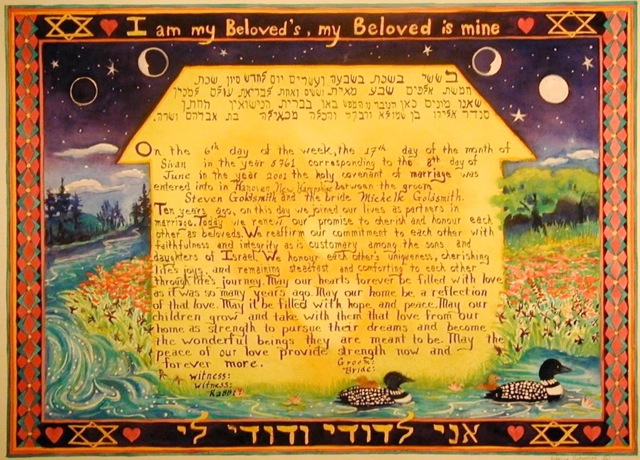 I am my Beloved's, my Beloved is mine
בששי בשבת בשבעה ועשרים יום לחדש סיון שנת
חמשת אלפים שבע מאות וששים ואחת לבריאת עולם למנין
שאנו מונים כאן באו בברית הנישואין החתן
בן שמואל ורבקה והכלה מכאילה בת אברהם ושרה.
On the 6th day of the week, the 17th day of the month of
Sivan in the year 5761 corresponding to the 8th day of
June in the year 2001 the holy covenant of marriage was
entered into in Hanover, New Hampshire between the groom
Steven Goldsmith and the bride Michelle Goldsmith.
Ten years ago, on this day we joined our lives as partners in
marriage. Today we renew our promise to cherish and honour each
other as beloveds. We reaffirm our commitment to each other with
faithfulness and integrity as is customary among the sons and
daughters of Israel. We honour each other's uniqueness, cherishing
life's joys, and remaining steadfast and comforting to each other
through life's journey. May our hearts forever be filled with love
as it was so many years ago. May our home be a reflection
of that love. May it be filled with hope and peace. May our
children grow and take with them that love from our
home as strength to pursue their dreams and become
the wonderful beings they are meant to be. May the
peace of our love provide strength now and
forever more.
Groom:
Bride:
Witness:
Witness:
Rabbi:
אני לדודי ודודי לי